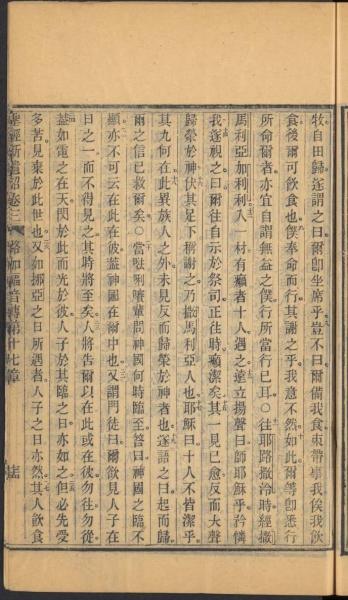 牧自田歸遂謂之曰爾卽坐席乎豈不曰爾備我食束帶事我俟我飲
食後爾可飲食也僕奉命而行其謝之乎我意不然如此爾等卽悉行
所命爾者亦宜自謂無益之僕行所當行已耳〇往耶路撒冷時經撒
馬利亞加利利入一村有癩者十人遇之遠立揚聲曰師耶穌乎矜憐
我遂視之曰爾往自示於祭司正往時癩潔矣其一見已愈反而大聲
歸榮於神伏其足下稱謝之乃撒馬利亞人也耶穌曰十人不皆潔乎
其九何在此異族人之外未見反而歸榮於神者也遂語之曰起而歸
爾之信已救爾矣〇當𠵽唎㘔輩問神國何時臨至答曰神國之臨不
顯亦不可云在此在彼蓋神國在爾中也又謂門徒曰爾欲見人子在
日之一而不得見之其時將至矣人將告爾以在此或在彼勿往勿從
蓋如電之在天閃於此而光於彼人子於其臨之日亦如之但必先受
多苦見棄於此世也又如挪亞之日所遇者人子之日亦然其人飲食
聖經新遺詔卷三 路加福音傳第十七章